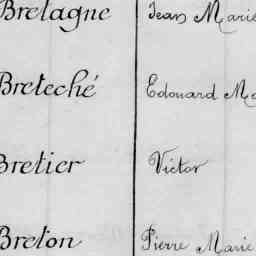 Bretagne Jean Marie
Breteché Edouard Ma
Bretier Victor
Breton Pierre Marie